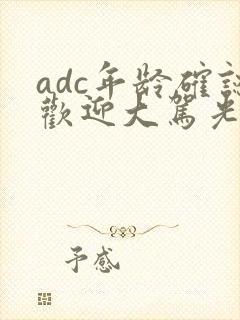 adc年龄確認
歡迎大駕光
予感